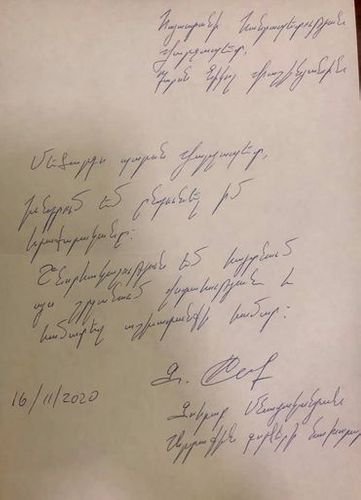 Հայաստանի Հանրապետության
վարչապետ,
պարոն Նիկոլ Փաշինյանին
Մեծարգո պարոն վարչապետ,
խնդրում եմ ընդունել իմ
հրաժարականը:
Շնորհակալություն եմ հայտնում
այս շրջանում վստահության և
համատեղ աշխատանքի համար:
16/11/2020
Զոհրաբ Մնացականյան
Արտաքին գործերի նախարար